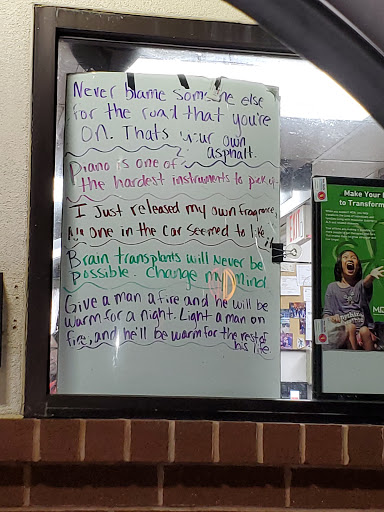 Never blame someone else
for the road that you're
on. Thats your own
asphalt.
Piano is one of
the hardest instruments to pick up.
I Just released my own fragrance,
No one in the car seemed to like
it
Brain transplants will Never be
possible. Change my mind
Give a man a fire and he will be
warm for a night. Light a man on
fire, and he'll be warm for the rest of
his life.
Make Your
to Transform